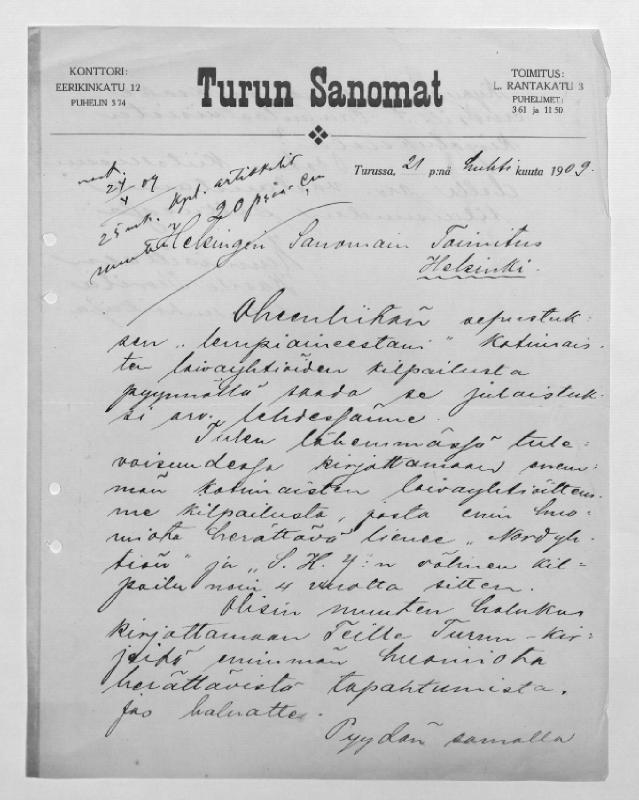 KONTTORI:
EERIKINKATU 12
PUHELIN 374
Turun Sanomat
TOIMITUS:
L. RANTAKATU 3
PUHELIMET:
361 ja 1150
Turussa, 21 p:nä huhti kuuta 1909.
24/4 09
25 mk. kpl. artikkelit
20 p:iä
Helsingin Sanomain Toimitus
Helsinki.
Oheenliitän sepustuk-
sen „lempiaineestani" kotimais-
ten laivayhtiöiden kilpailusta
pyynnöllä saada se julaistuk-
si arv. lehdessänne.
Tulen lähemmässä tule-
vaisuudessa kirjottamaan enem-
män kotimaisten laivayhtiöittem-
me kilpailusta, josta enin huo-
miota herättävä lienee „Nordyh-
tiön" ja „S. H. Y":n välinen kil-
pailu noin 4 vuotta sitten.
Olisin muuten halukas
kirjottamaan Teille Turun-kir-
jeitä enimmän huomiota
herättävistä tapahtumista,
jos haluatte.
Pyydän samalla